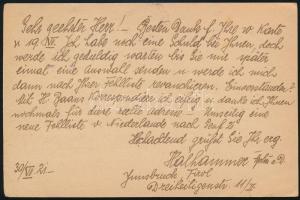 Sehr geehrter Herr! – Besten Dank f. Ihre w. Karte
v. 19. XII. Ich habe noch eine Schuld bei Ihnen, doch
werde ich geduldig warten bis Sie mir später
einmal eine Auswahl senden u. werde ich mich
dann nach Ihrer Fehlliste revanchieren. Einverstanden?
Mit H. Baans korrespondiere ich eifrig u. danke ich Ihnen
nochmals für diese nette Adresse! Umseitig eine
neue Fehlliste v. Niederlande nach
Hochachtend grüßt Sie Ihr erg.
Halhammer
30/XII 21. – Innsbruck, Tirol
Dreiheiligenstr. 11/I.